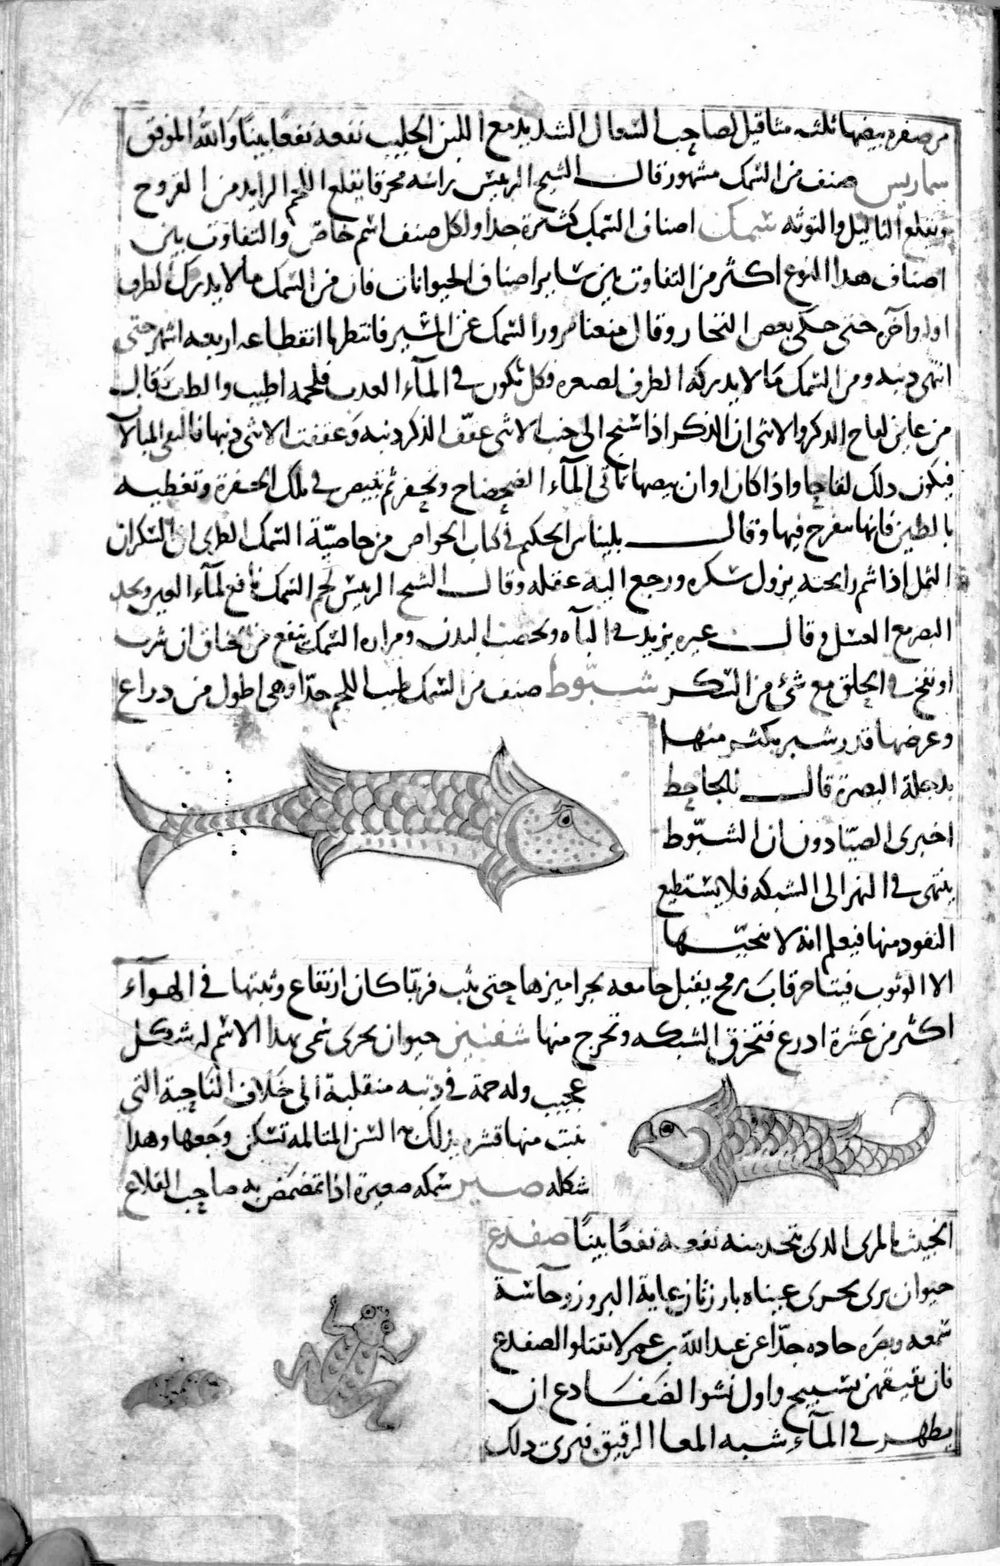 من صفرة بيضها ثلثه مثاقيل لصاحب السعال الشديد مع اللبن الحليب نفعه نفعًا بينًا والله الموفق
سماريس صنف من السمك مشهور قال الشيخ الرئيس راسه محرقا يقلع اللحم الزايد من القروح
ويقلع الثاليل والتوثه سمك اصناف السمك كثيرة جدا ولكل صنف اسم خاص والتفاوت بين
اصناف هذا النوع اكثر من التفاوت بين ساير اصناف الحيوانات فان من السمك ما لا يدرك الطرف
اوله وآخره حتى حكى بعض التجار وقال منعنا مرور السمك عن السير فانتظرنا انقطاعه اربعه اشهر حتى
انتهى ذنبه ومن السمك ما لا يدركه الطرف لصغره وكل تكون في المآء العذب فلحمه اطيب والطف وقال
من عاين لقاح الذكر والانثى ان الذكر اذا سبح الى جنب الانثى عقّف الذكر ذنبه وعقفت الانثى ذنبها فالتقى المبالان
فيكون ذلك لقاحا واذا كان اوان بيضها تاتى المآء الضحضاح وتحفر ثم تبيض في تلك الحفرة وتغطيه
بالطين فانها تفرخ فيها وقال بليناس الحكيم في كتاب الخواص من خاصيّة السمك الطرى ان السكران
الثمل اذا شم رايحته يزول سكره ورجع اليه عقله وقال الشيخ الرئيس لحم السمك نافع لمآء العين ويحد
البصر مع العسل وقال غيره يزيد في الباه ويخصب البدن ومراره السمك ينفع من الخناق ان شرب
او نفخ في الحلق مع شئ من السكر شبّوط صنف من السمك طيب اللحم جدّا وهى اطول من ذراع
وعرضها قدر شبر يكثر منها
بدجلة البصرة قال الجاحظ
اخبرنى الصيّادون ان الشبّوط
ينتهى في النهر الى الشبكه فلا يستطيع
النفود منها فيعلم انه لا ينجيّها
الا الوثوب فيتاخر قاب رمح يقبل جامعه بجراميزها حتى يثب فربّما كان ارتفاع وثبتها في الهوآء
اكثر من عشرة ادرع فتخرق الشبكه وتخرج منها شفنين حيوان بحرى يسمى بهذا الاسم له شكل
عجيب وله حمة في ذنبه منقلبة الى خلاف الناحية التى
ينبت منها قشره يدلك به السن المتالمه تسكن وجعها وهذا
شكله صير سمكه صغيرة اذا تمضمض به صاحب القلاع
الخبيث بالمرى الذى يتخذ منه نفعه نفعًا بينًا ضفدع
حيوان برى بحرى عيناه بارزتان غاية البروز وحاسّة
سمعه وبصره حاده جدّا عن عبد الله بن عمر لا تقتلوا الضفدع
فان نقيقهن تسبيح واول نشو الضفادع ان
يظهر في المآء شبه المعا الرقيق فيرى ذلك